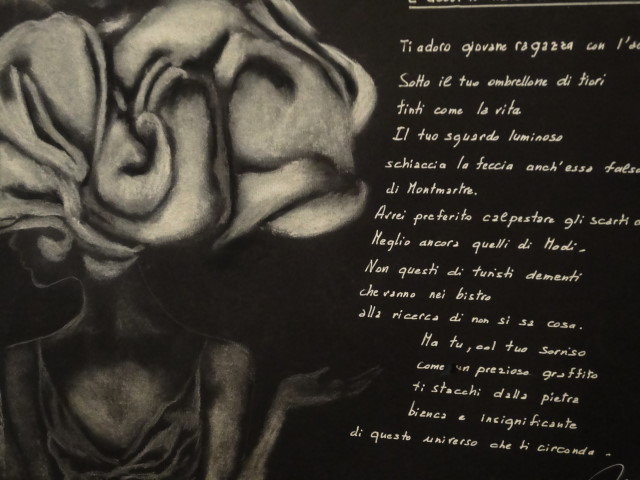 Ti adoro giovane ragazza con l'
Sotto il tuo ombrellone di fiori
tinti come la vita
Il tuo sguardo luminoso
schiaccia la feccia anch'essa
di Montmartre.
Avrei preferito calpestare gli scarti
Meglio ancora quelli di Modì.
Non questi di turisti dementi
che vanno nei bistro
alla ricerca di non si sa cosa.
Ma tu, col tuo sorriso
come un prezioso graffito
ti stacchi dalla pietra
bianca e insignificante
di questo universo che ti circonda.